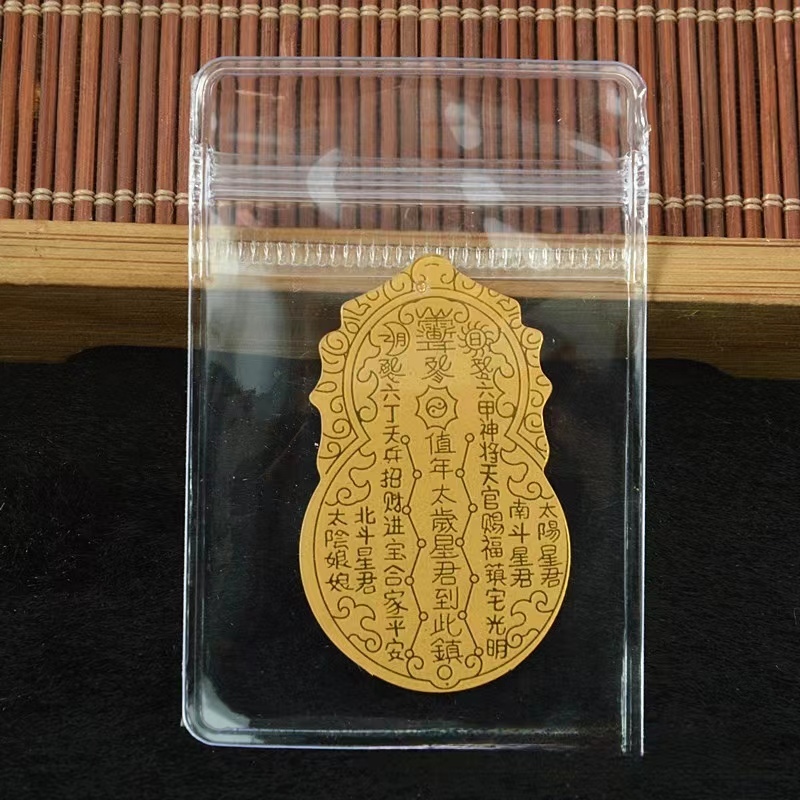 太陽星君
南斗星君
六甲神将天官賜福鎮宅光明
值年太歲星君到此鎮
六丁天兵招财进宝合家平安
北斗星君
太陰娘娘